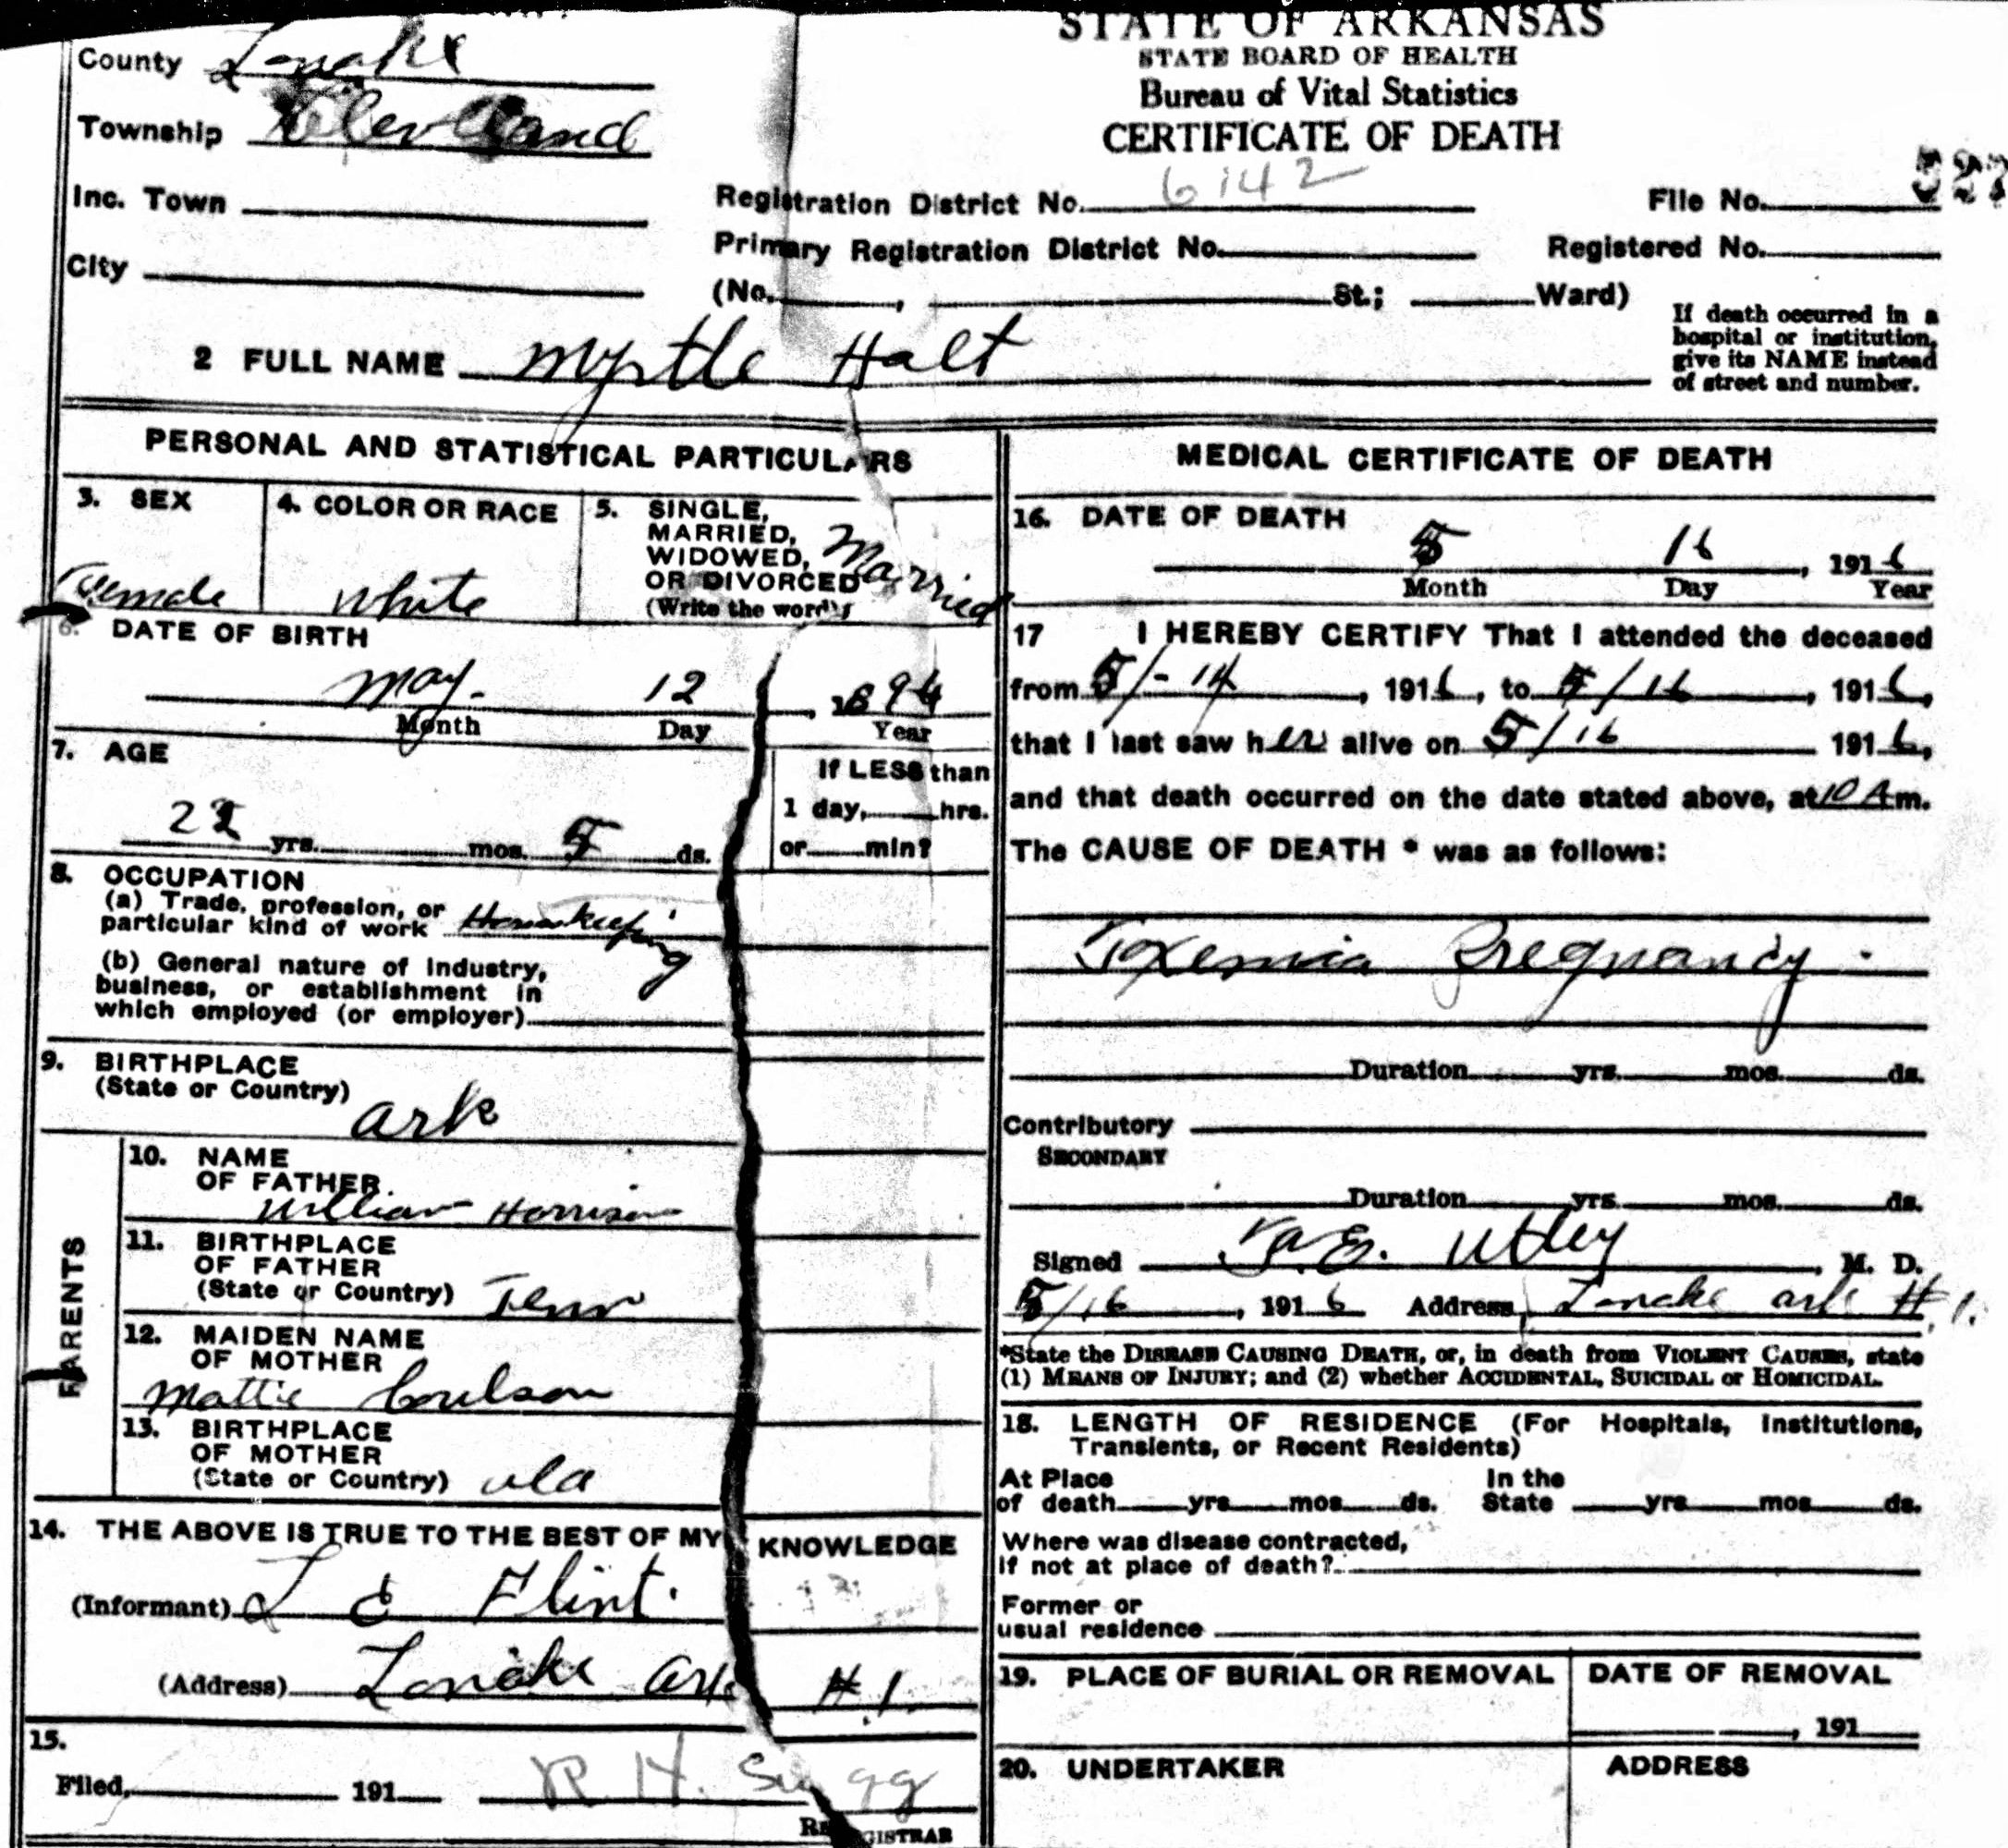 STATE OF ARKANSAS
STATE BOARD OF HEALTH
Bureau of Vital Statistics
CERTIFICATE OF DEATH
County Lonoke
Township Cleveland
Inc. Town
City
Registration District No. 6142
File No.
Primary Registration District No.
Registered No.
(No. , St.; Ward)
If death occurred in a
hospital or institution,
give its NAME instead
of street and number.
2 FULL NAME Myrtle Halt
PERSONAL AND STATISTICAL PARTICULARS
3. SEX
Female
4. COLOR OR RACE
White
5. SINGLE,
MARRIED,
WIDOWED,
OR DIVORCED
(Write the word)
Married
6. DATE OF BIRTH
May. 12, 1894
Month Day Year
7. AGE
22 yrs. mos. 5 ds.
If LESS than
1 day, hrs.
or min?
8. OCCUPATION
(a) Trade, profession, or
particular kind of work Housekeeping
(b) General nature of Industry,
business, or establishment in
which employed (or employer)
9. BIRTHPLACE
(State or Country)
Ark
PARENTS
10. NAME
OF FATHER
William Harrison
11. BIRTHPLACE
OF FATHER
(State or Country) Tenn
12. MAIDEN NAME
OF MOTHER
Mattie Coulson
13. BIRTHPLACE
OF MOTHER
(State or Country)
14. THE ABOVE IS TRUE TO THE BEST OF MY KNOWLEDGE
(Informant) L E Flint.
(Address) Lonoke Ark # 1
15.
Filed, 191 R H. Sugg
REGISTRAR
MEDICAL CERTIFICATE OF DEATH
16. DATE OF DEATH
5 16, 1916
Month Day Year
17 I HEREBY CERTIFY That I attended the deceased
from 5/-14, 1916, to 5/16, 1916,
that I last saw her alive on 5/16 1916,
and that death occurred on the date stated above, at 10 A m.
The CAUSE OF DEATH * was as follows:
Toxemia Pregnancy.
Duration yrs. mos. ds.
Contributory
SECONDARY
Duration yrs. mos. ds.
Signed E. Utley, M. D.
5/16, 1916 Address Lonoke Ark # 1.
*State the DISEASE CAUSING DEATH, or, in death from VIOLENT CAUSES, state
(1) MEANS OF INJURY; and (2) whether ACCIDENTAL, SUICIDAL or HOMICIDAL.
18. LENGTH OF RESIDENCE (For Hospitals, Institutions,
Transients, or Recent Residents)
At Place In the
of death yrs mos ds. State yrs mos ds.
Where was disease contracted,
if not at place of death?
Former or
usual residence
19. PLACE OF BURIAL OR REMOVAL
DATE OF REMOVAL
, 191
20. UNDERTAKER
ADDRESS